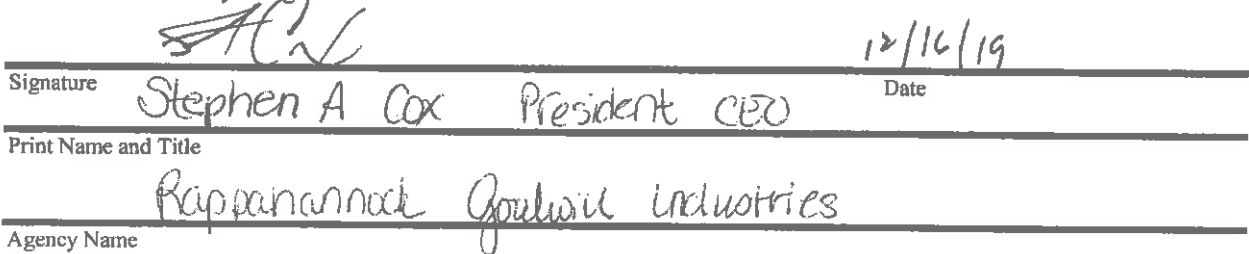 12/16/19
Signature Date
Stephen A Cox President CEO
Print Name and Title
Rappahannock Goodwill industries
Agency Name